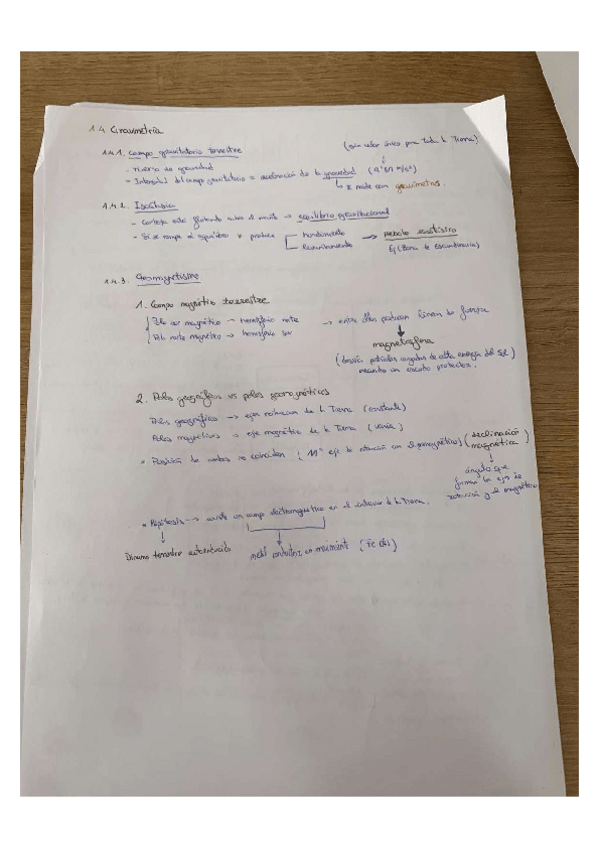 1.4 Gravimetría
1.4.1. Campo gravitatorio terrestre (sin valor único para toda la Tierra)
- Fuerza de gravedad
- Intensidad del campo gravitatorio = aceleración de la gravedad (9'81 m/s²)
↳ se mide con gravímetros.
1.4.2. Isostasia
- Corteza está flotando sobre el manto → equilibrio gravitacional
- Si se rompe el equilibrio se produce hundimiento → rebote isostático
levantamiento Ej (Zona de Escandinavia)
1.4.3. Geomagnetismo
1. Campo magnético terrestre
Polo sur magnético → hemisferio norte → entre ellos líneas de fuerza
Polo norte magnético → hemisferio sur
magnetosfera
(desvía partículas cargadas de alta energía del Sol
escudo protector.)
2. Polos geográficos vs polos geomagnéticos
Polos geográficos → eje rotación de la Tierra (constante)
Polos magnéticos → eje magnético de la Tierra (varía)
* Posición de ambos no coinciden (11° eje de rotación con el geomagnético) (declinación
magnética)
ángulo que
forman los ejes de
rotación y el magnético
* Hipótesis → existe un campo electromagnético en el interior de la Tierra.
Dinamo terrestre metal conductor en movimiento (Fe